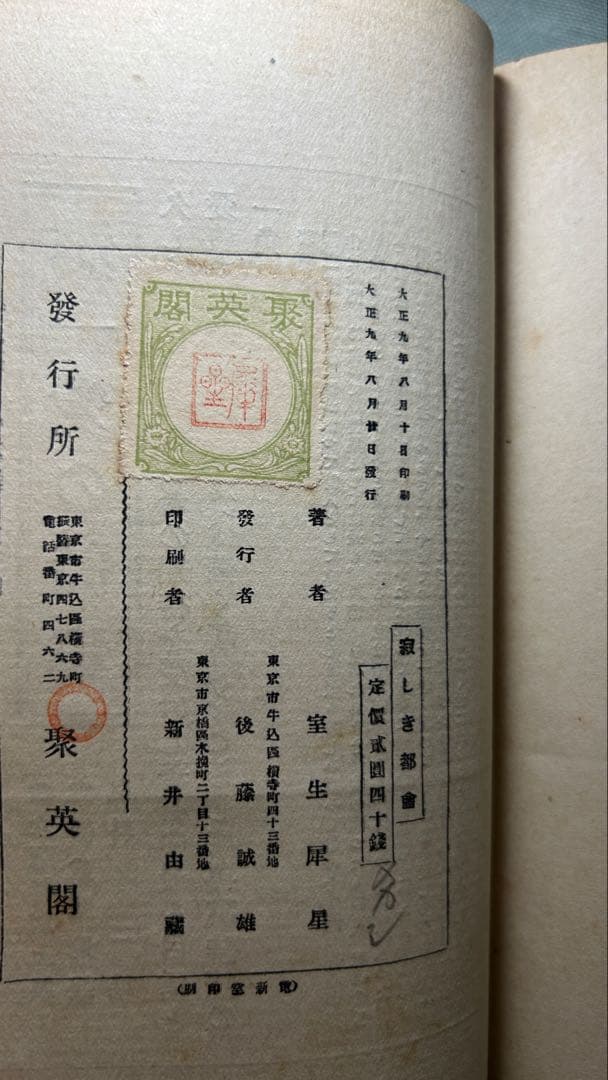 大正九年八月十日印刷
大正九年八月廿日發行
寂しき都會
定價貳圓四十錢
著者 室生犀星
東京市牛込區横寺町四十三番地
發行者 後藤誠雄
東京市京橋區木挽町二丁目十三番地
印刷者 新井由藏
聚英閣
發行所
東京市牛込區横寺町
振替東京四七八六九
電話番町四六二
聚英閣
(電新堂印刷)